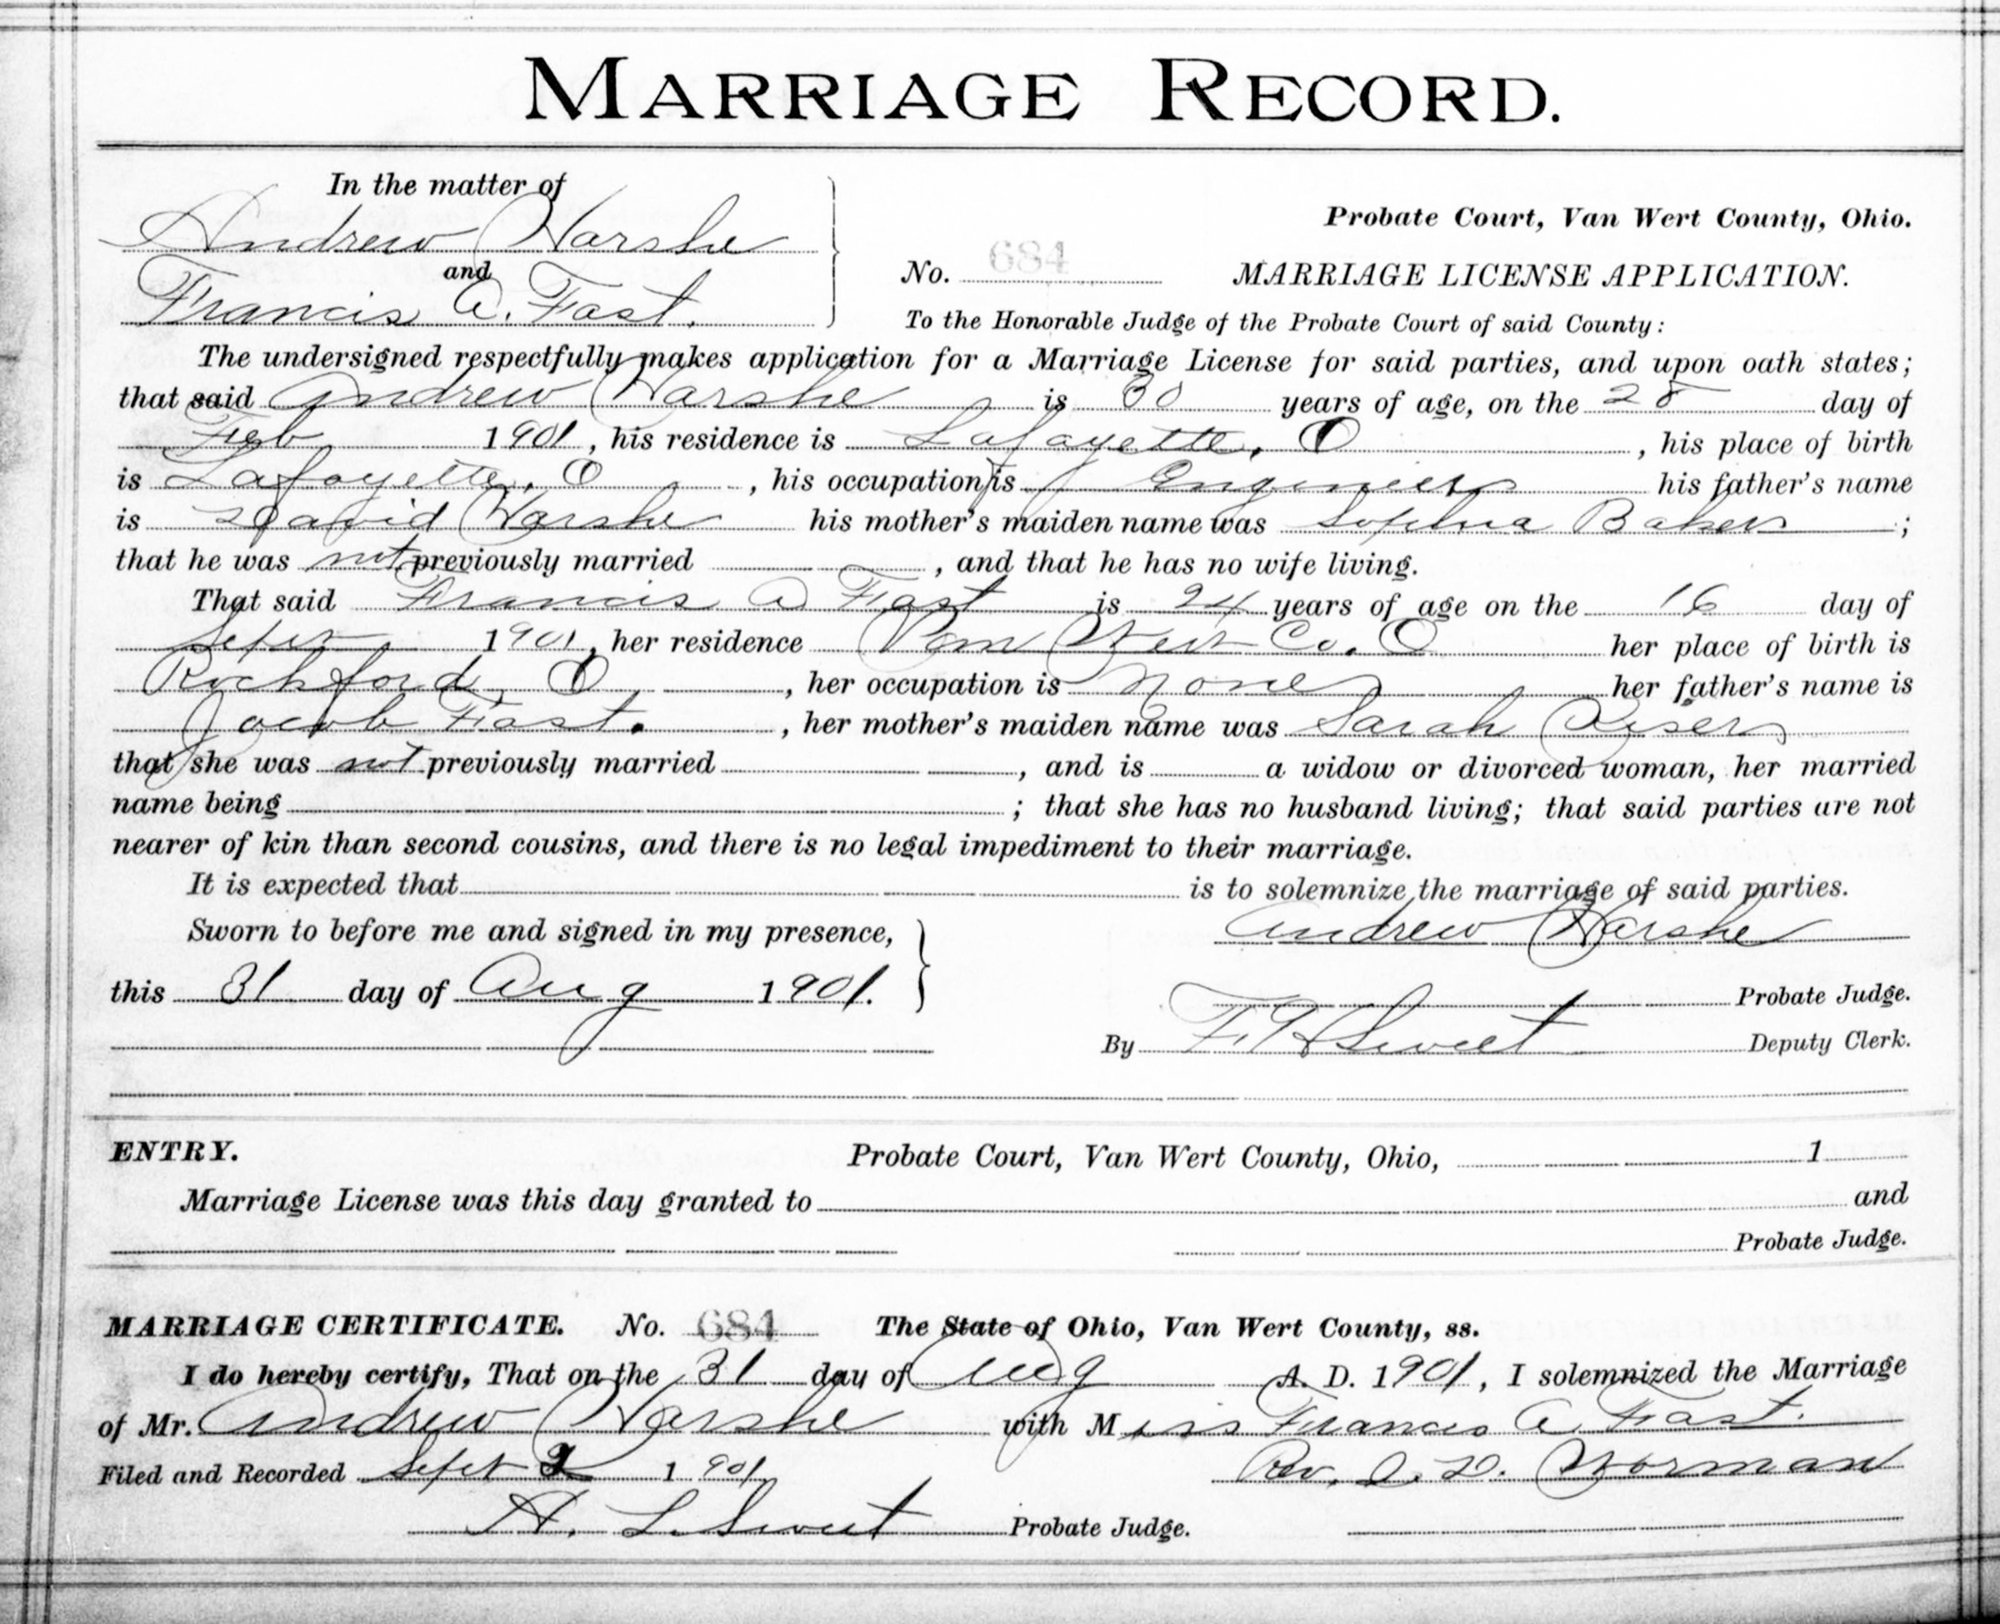 MARRIAGE RECORD.
In the matter of
Andrew Harshe
and
Francis A. Fast.
Probate Court, Van Wert County, Ohio.
No. 684 MARRIAGE LICENSE APPLICATION.
To the Honorable Judge of the Probate Court of said County:
The undersigned respectfully makes application for a Marriage License for said parties, and upon oath states;
that said Andrew Harshe is 30 years of age, on the 28 day of
Feb 1901, his residence is Lafayette, O, his place of birth
is Lafayette, O, his occupation is Engineer his father's name
is David Harshe his mother's maiden name was Sophia Baker;
that he was not previously married, and that he has no wife living.
That said Francis A Fast is 24 years of age on the 16 day of
Sept 1901, her residence Van Wert Co. O her place of birth is
Rockford, O, her occupation is None her father's name is
Jacob Fast., her mother's maiden name was Sarah
that she was not previously married, and is a widow or divorced woman, her married
name being ; that she has no husband living; that said parties are not
nearer of kin than second cousins, and there is no legal impediment to their marriage.
It is expected that is to solemnize the marriage of said parties.
Sworn to before me and signed in my presence, Andrew Harshe
this 31 day of Aug 1901. Probate Judge.
By Sweet Deputy Clerk.
ENTRY. Probate Court, Van Wert County, Ohio, 1
Marriage License was this day granted to and
Probate Judge.
MARRIAGE CERTIFICATE. No. 684 The State of Ohio, Van Wert County, ss.
I do hereby certify, That on the 31 day of Aug A. D. 1901, I solemnized the Marriage
of Mr. Andrew Harshe with Miss Francis A. Fast.
Filed and Recorded Sept 2 1901 Rev. Worman
A. L. Sweet Probate Judge.